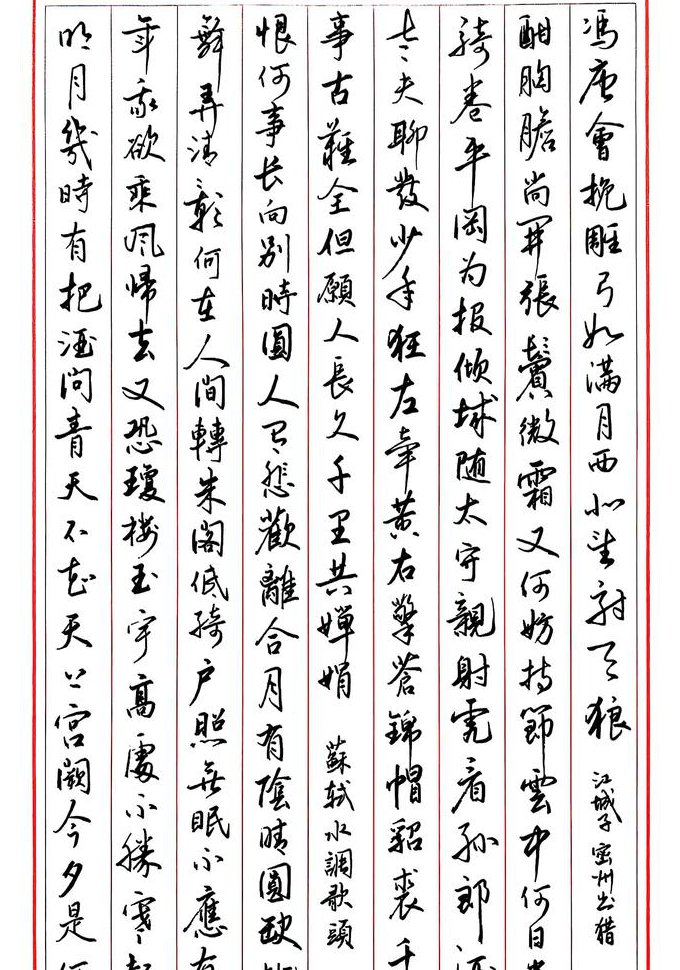 明月幾時有把酒問青天不知天上宮闕今夕是何
年我欲乘風歸去又恐瓊樓玉宇高處不勝寒起
舞弄清影何在人間轉朱閣低綺户照無眠不應有
恨何事长向别時圓人有悲歡離合月有陰晴圓缺
事古難全但願人長久千里共嬋娟 蘇轼水調歌頭
老夫聊發少年狂左牽黄右擎蒼錦帽貂裘千
騎卷平岡为报倾城随太守親射虎看孙郎酒
酣胸膽尚開張鬢微霜又何妨持節雲中何日遣
馮唐會挽雕弓如满月西北望射天狼 江城子密州出猎